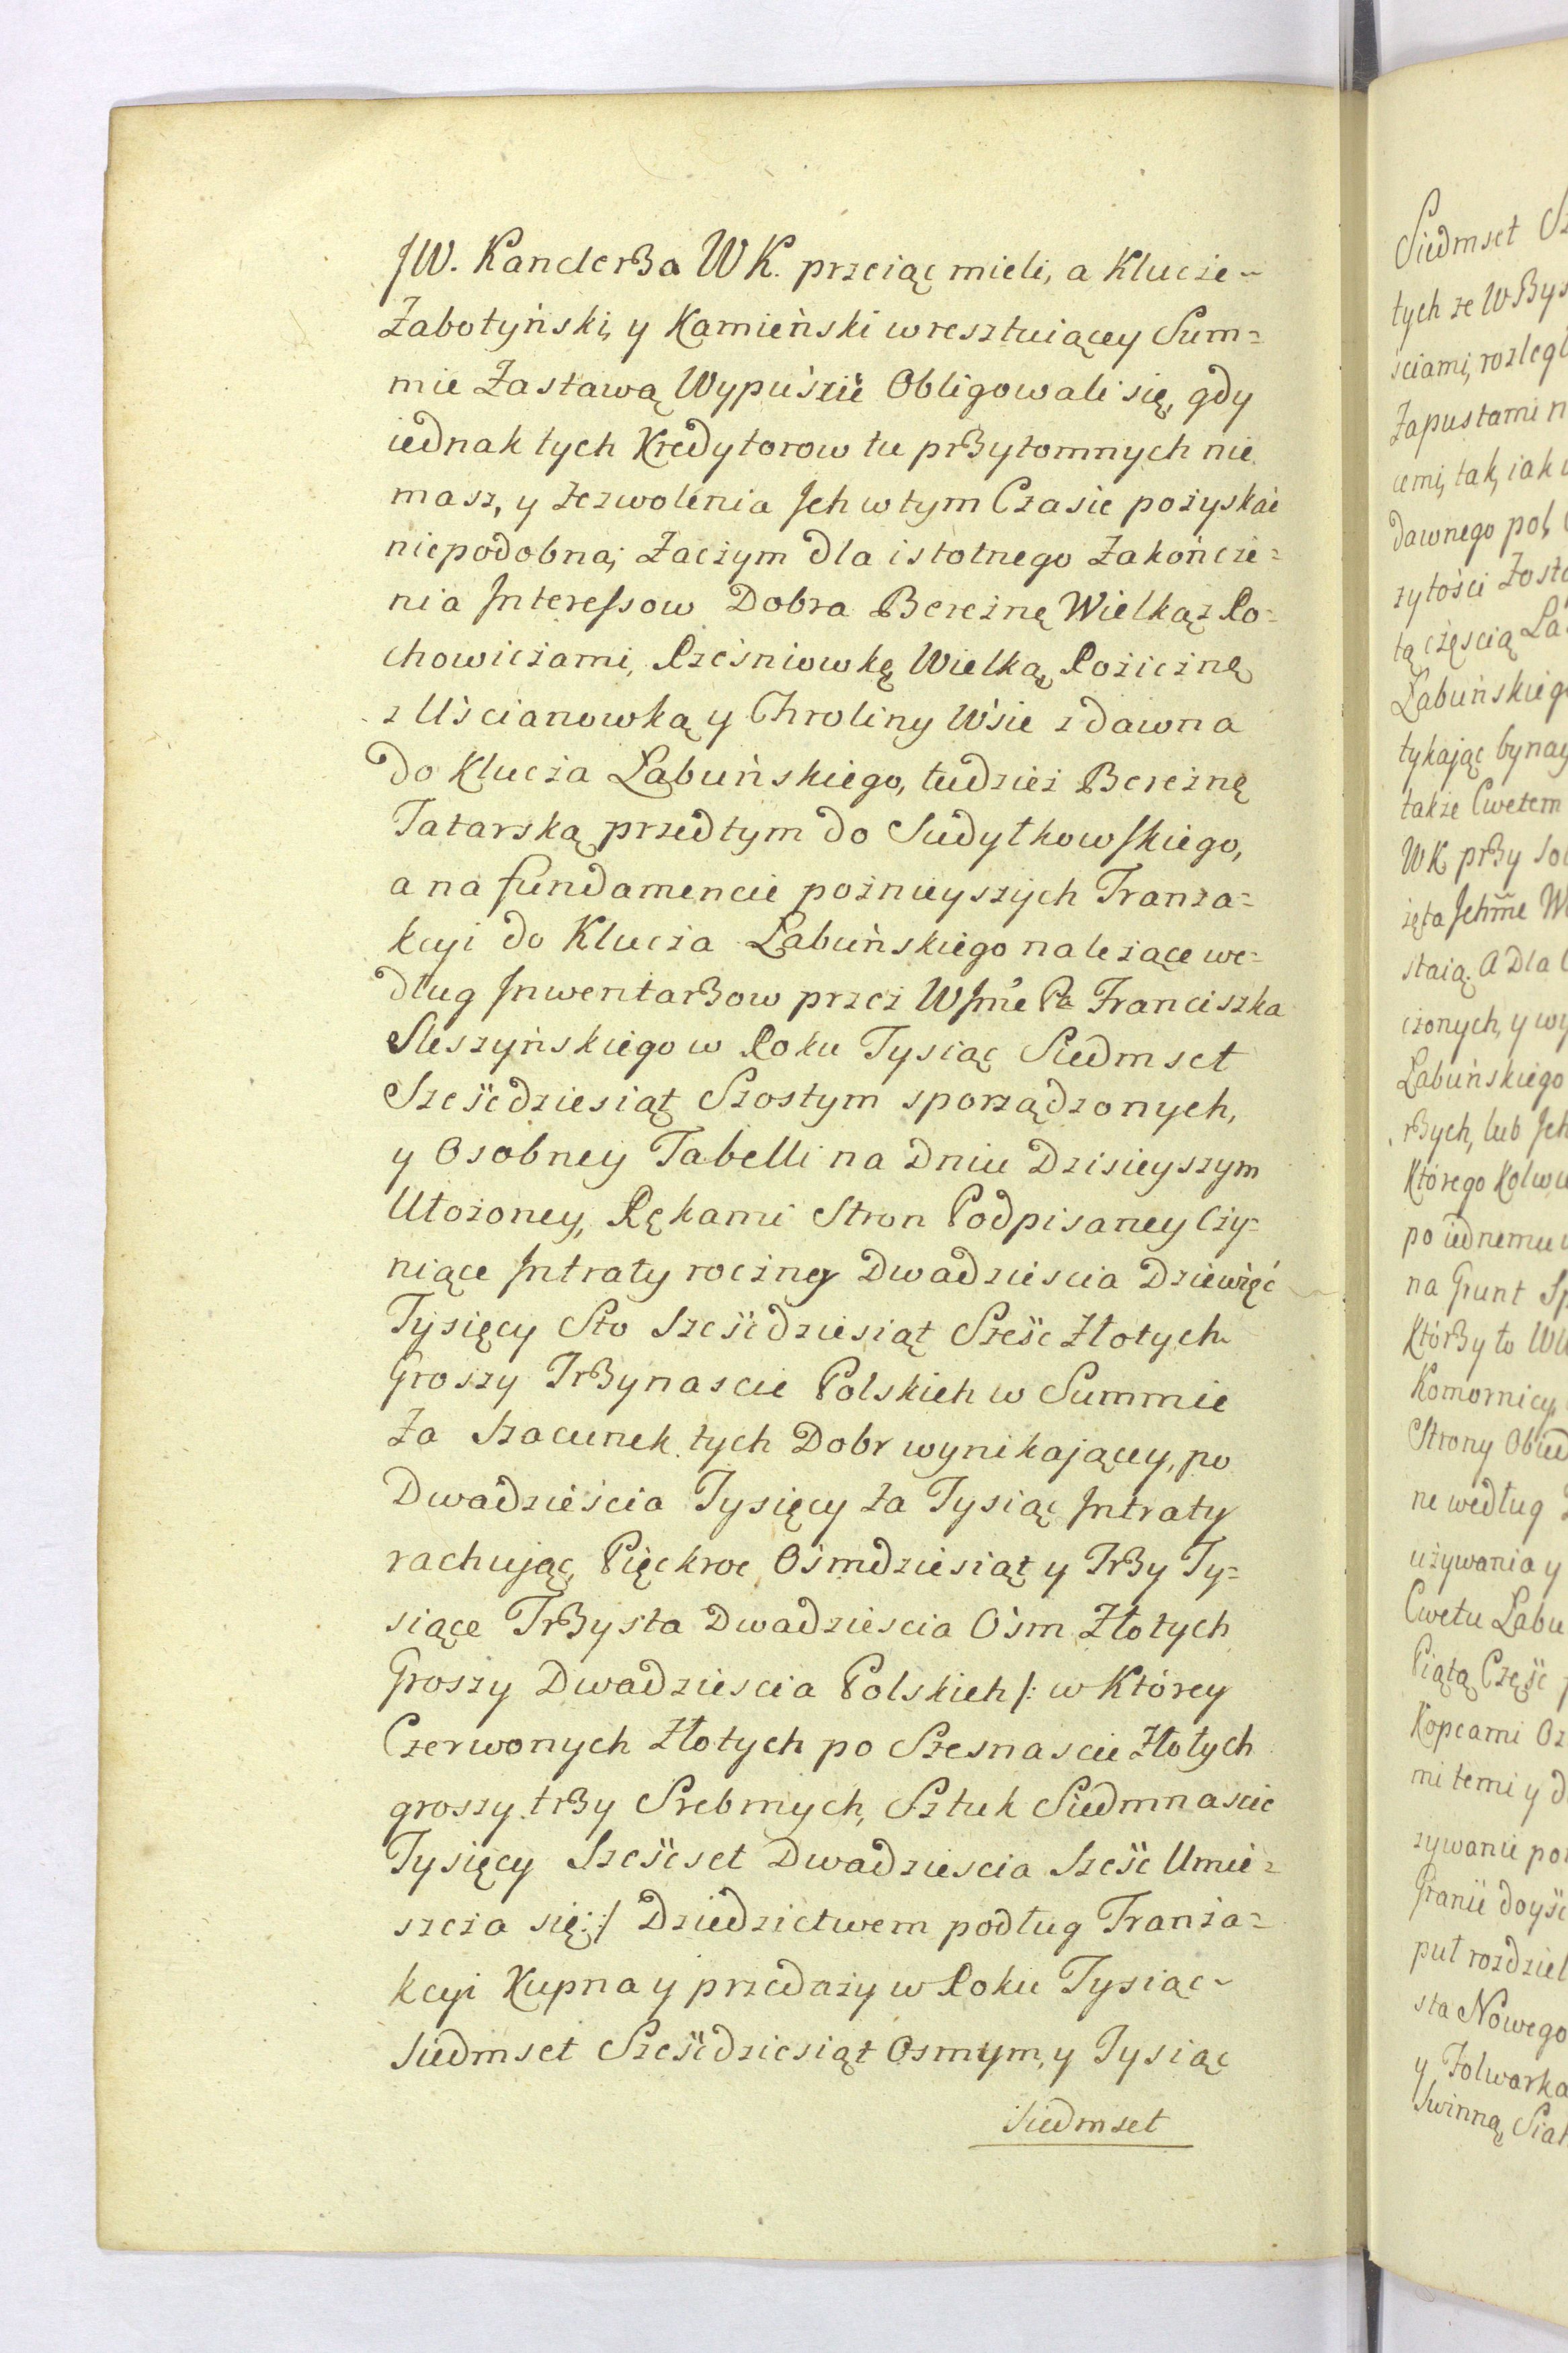 JW. Kanclerza WK. przeiąc mieli, a Klucze~
Żabotyński, y Kamieński w resztuiącey Sum=
mie Zastawą Wypuścić Obligowali się, gdy
iednak tych Kredytorow tu przytomnych nie
masz, y Zezwolenia Jch w tym Czasie pożyskać
niepodobna; Zaczym dla istotnego Zakończe=
nia Interessow Dobra Bereżnę Wielką z Ro=
chowiczami, Rześniowkę Wielką, Rożiczną
z Uścianowką y Chroliny Wsie z dawna
do Klucza Łabuńskiego, tudzież Bereżnę
Tatarską przedtym do Sudyłkowskiego,
a na fundamencie poźnieyszych Tranza=
kcyi do Klucza Łabuńskiego należące we=
dług Inwentarzow przez WJme Pa Franciszka
Sleszyńskiego w Roku Tysiąc Siedmset
Sześćdziesiąt Szostym sporządzonych,
y Osobney Tabelli na Dniu Dzisieyszym
Ułożoney, Rękami Stron Podpisaney Czy=
niące Intraty roczney Dwadziescia Dziewięć
Tysięcy Sto Sześćdziesiąt Sześć Złotych
Groszy Trzynascie Polskich w Summie
Za Szacunek tych Dobr wynikającey, po
Dwadzieścia Tysięcy za Tysiąc Intraty
rachując, Pięckroc Ośmdziesiąt y Trzy Ty=
siące Trzysta Dwadziescia Ośm Złotych
Groszy Dwadziescia Polskich /: w Którey
Czerwonych Złotych po Szesnascie Złotych
groszy trzy Srebrnych, Sztuk Siedmnascie
Tysięcy Sześćset Dwadziescia Sześć Umie=
szcza się :/ Dziedzictwem podług Tranza=
kcyi Kupna y przedaży w Roku Tysiąc~
Siedmset Sześćdziesiąt Osmym, y Tysiąc
Siedmset
Siedmset
tych ze
ściami, rozległ
Zapustami n
cemi, tak, iak
dawnego pol,
zytości Zosta
tą częscią
Łabuńskiego
tykając bynay
także Cwetem
WK przy
Jchme
staią. A Dla
czonych, y wy
Łabuńskiego
rzych, lub Jch
Którego Kolwi
po iednemu
na Grunt
Którzy to
Komornicy,
Strony
ne według
używania y
Cwetu Łabu
Piątą Część
Kopcami
mi temi y
zywanie
put rozdziel
sta Nowego
y Folwarka
Swinną,